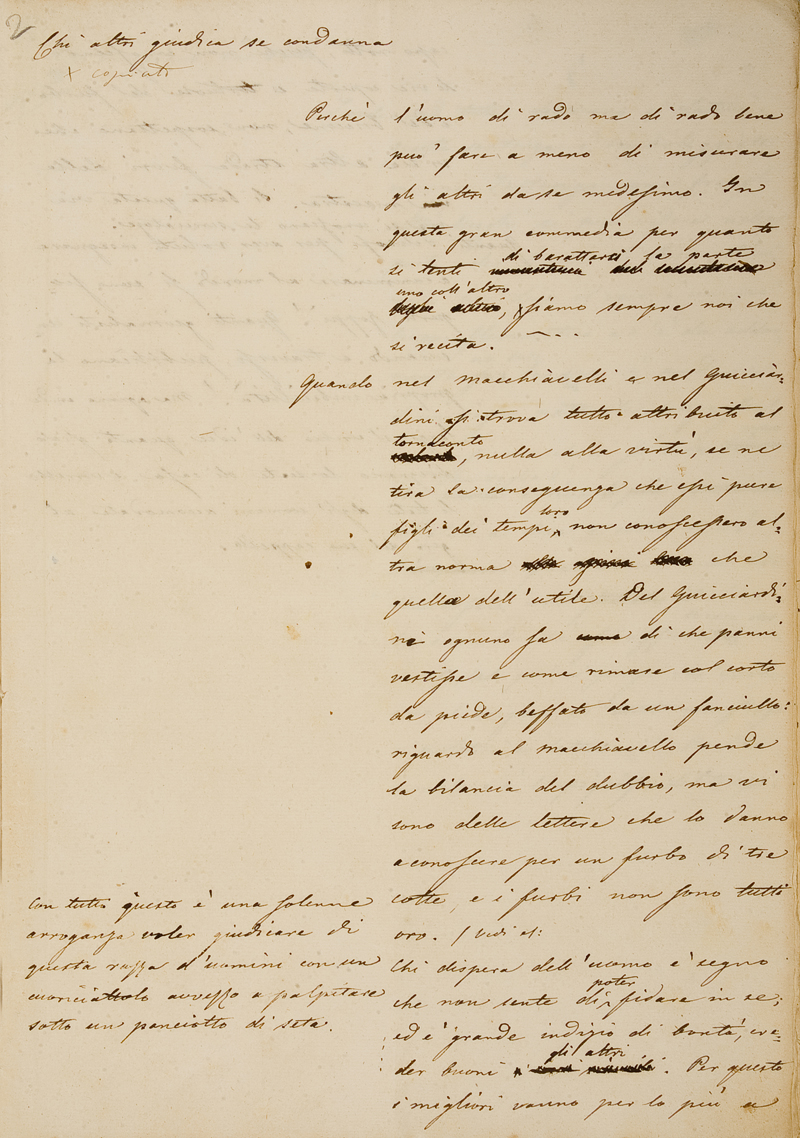 2
Chi altri giudica se condanna
x copiati
Perchè l'uomo di rado ma di rado bene
può fare a meno di misurare
gli altri da se medesimo. In
questa gran commedia per quanto
di barattarsi la parte
si tenti
uno coll'altro
, siamo sempre noi che
si recita.
Quando nel Macchiavelli e nel Guicciar=
dini si trova tutto attribuito al
tornaconto
, nulla alla virtù, se ne
tira la conseguenza che essi pure
loro
figli dei tempi, non conoscessero al=
tra norma che
quella dell'utile. Del Guicciardi=
ni ognuno sa come di che panni
vestisse e come rimase col corto
da piede, beffato da un fanciullo:
riguardo al Macchiavello pende
la bilancia del dubbio, ma vi
sono delle lettere che lo danno
a conoscere per un furbo di tre
cotte, e i furbi non sono tutti
oro. / Vedi al:
con tutto questo è una solenne
arroganza voler giudicare di
questa razza d'uomini con un
cuoriciattolo avvezzo a palpitare
sotto un panciotto di seta.
Chi dispera dell'uomo è segno
poter
che non sente di fidare in se;
ed è grande indizio di bontà, cre=
gli altri
der buoni . Per questo
i migliori vanno per lo più a